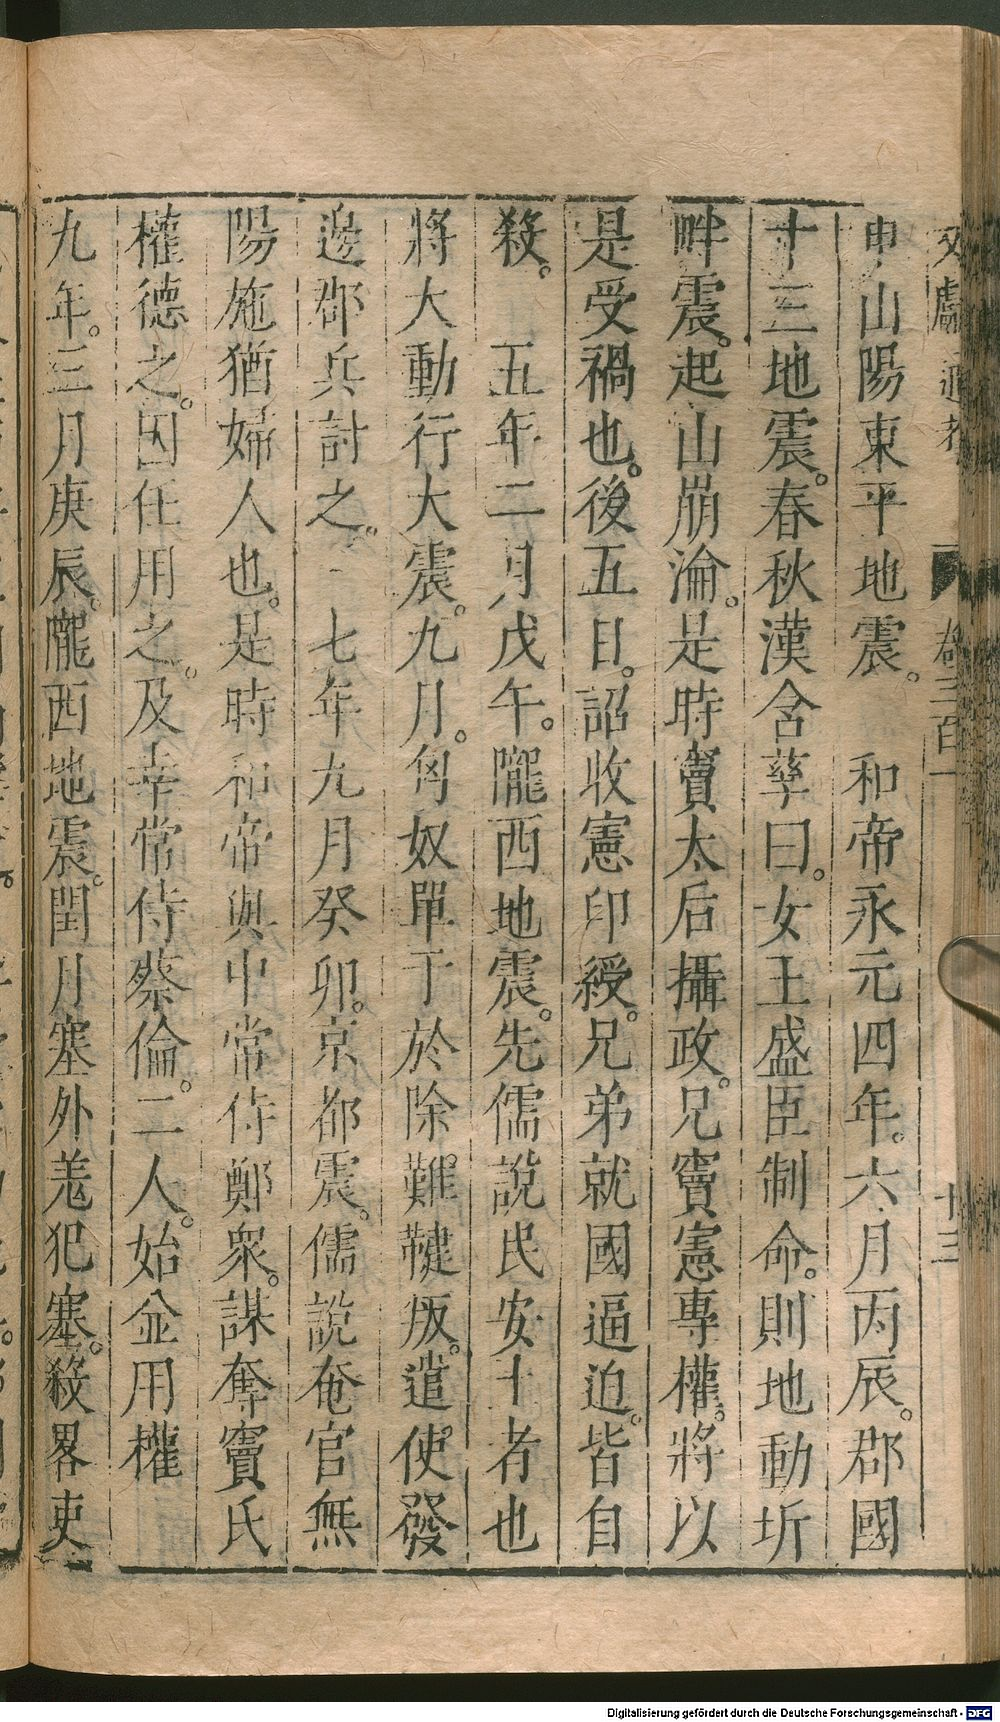 申山陽東平地震。　和帝永元四年。六月丙辰。郡國
十三地震。春秋漢含孳曰。女主盛臣制命。則地動坼
畔震。起山崩淪。是時竇太后攝政。兄竇憲專權。將以
是受禍也。後五日。詔收憲印綬。兄弟就國逼迫。皆自
殺。　五年二月戊午。隴西地震。先儒說民安土者也
將大動行大震。九月。匈奴單于於除難鞬叛。遣使發
邊郡兵討之。　七年九月癸卯。京都震。儒說奄官無
陽施猶婦人也。是時和帝與中常侍鄭衆。謀奪竇氏
權德之。因任用之。及幸常侍蔡倫。二人。始並用權
九年。三月庚辰。隴西地震。閏月塞外羌犯塞。殺畧吏
卷三百一
廿三
Digitalisierung gefördert durch die Deutsche Forschungsgemeinschaft - DFG